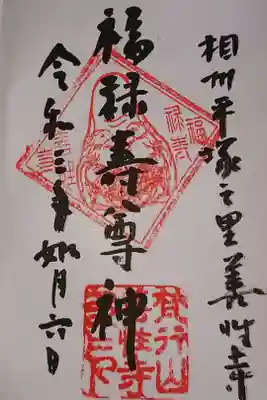 相州平塚之里善性寺
福禄寿
福禄寿尊神
令和三年如月六日
梵行山
善性寺